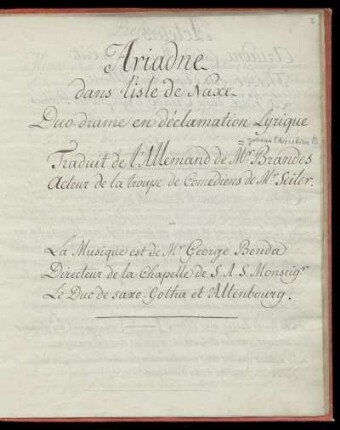 Ariadne
dans l'isle de Naxe
Duo-drame en déclamation Lyrique
Traduit de l'Allemand de Mr Brandes
Acteur de la troupe de Comediens de Mr Seiler.
La Musique est de Mr George Benda
Directeur de la Chapelle de S. A. S. Monseigr
Le Duc de saxe-Gotha et d'Altenbourg.